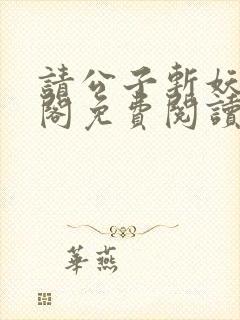 請公子斬妖
閣免費閱讀
華燕